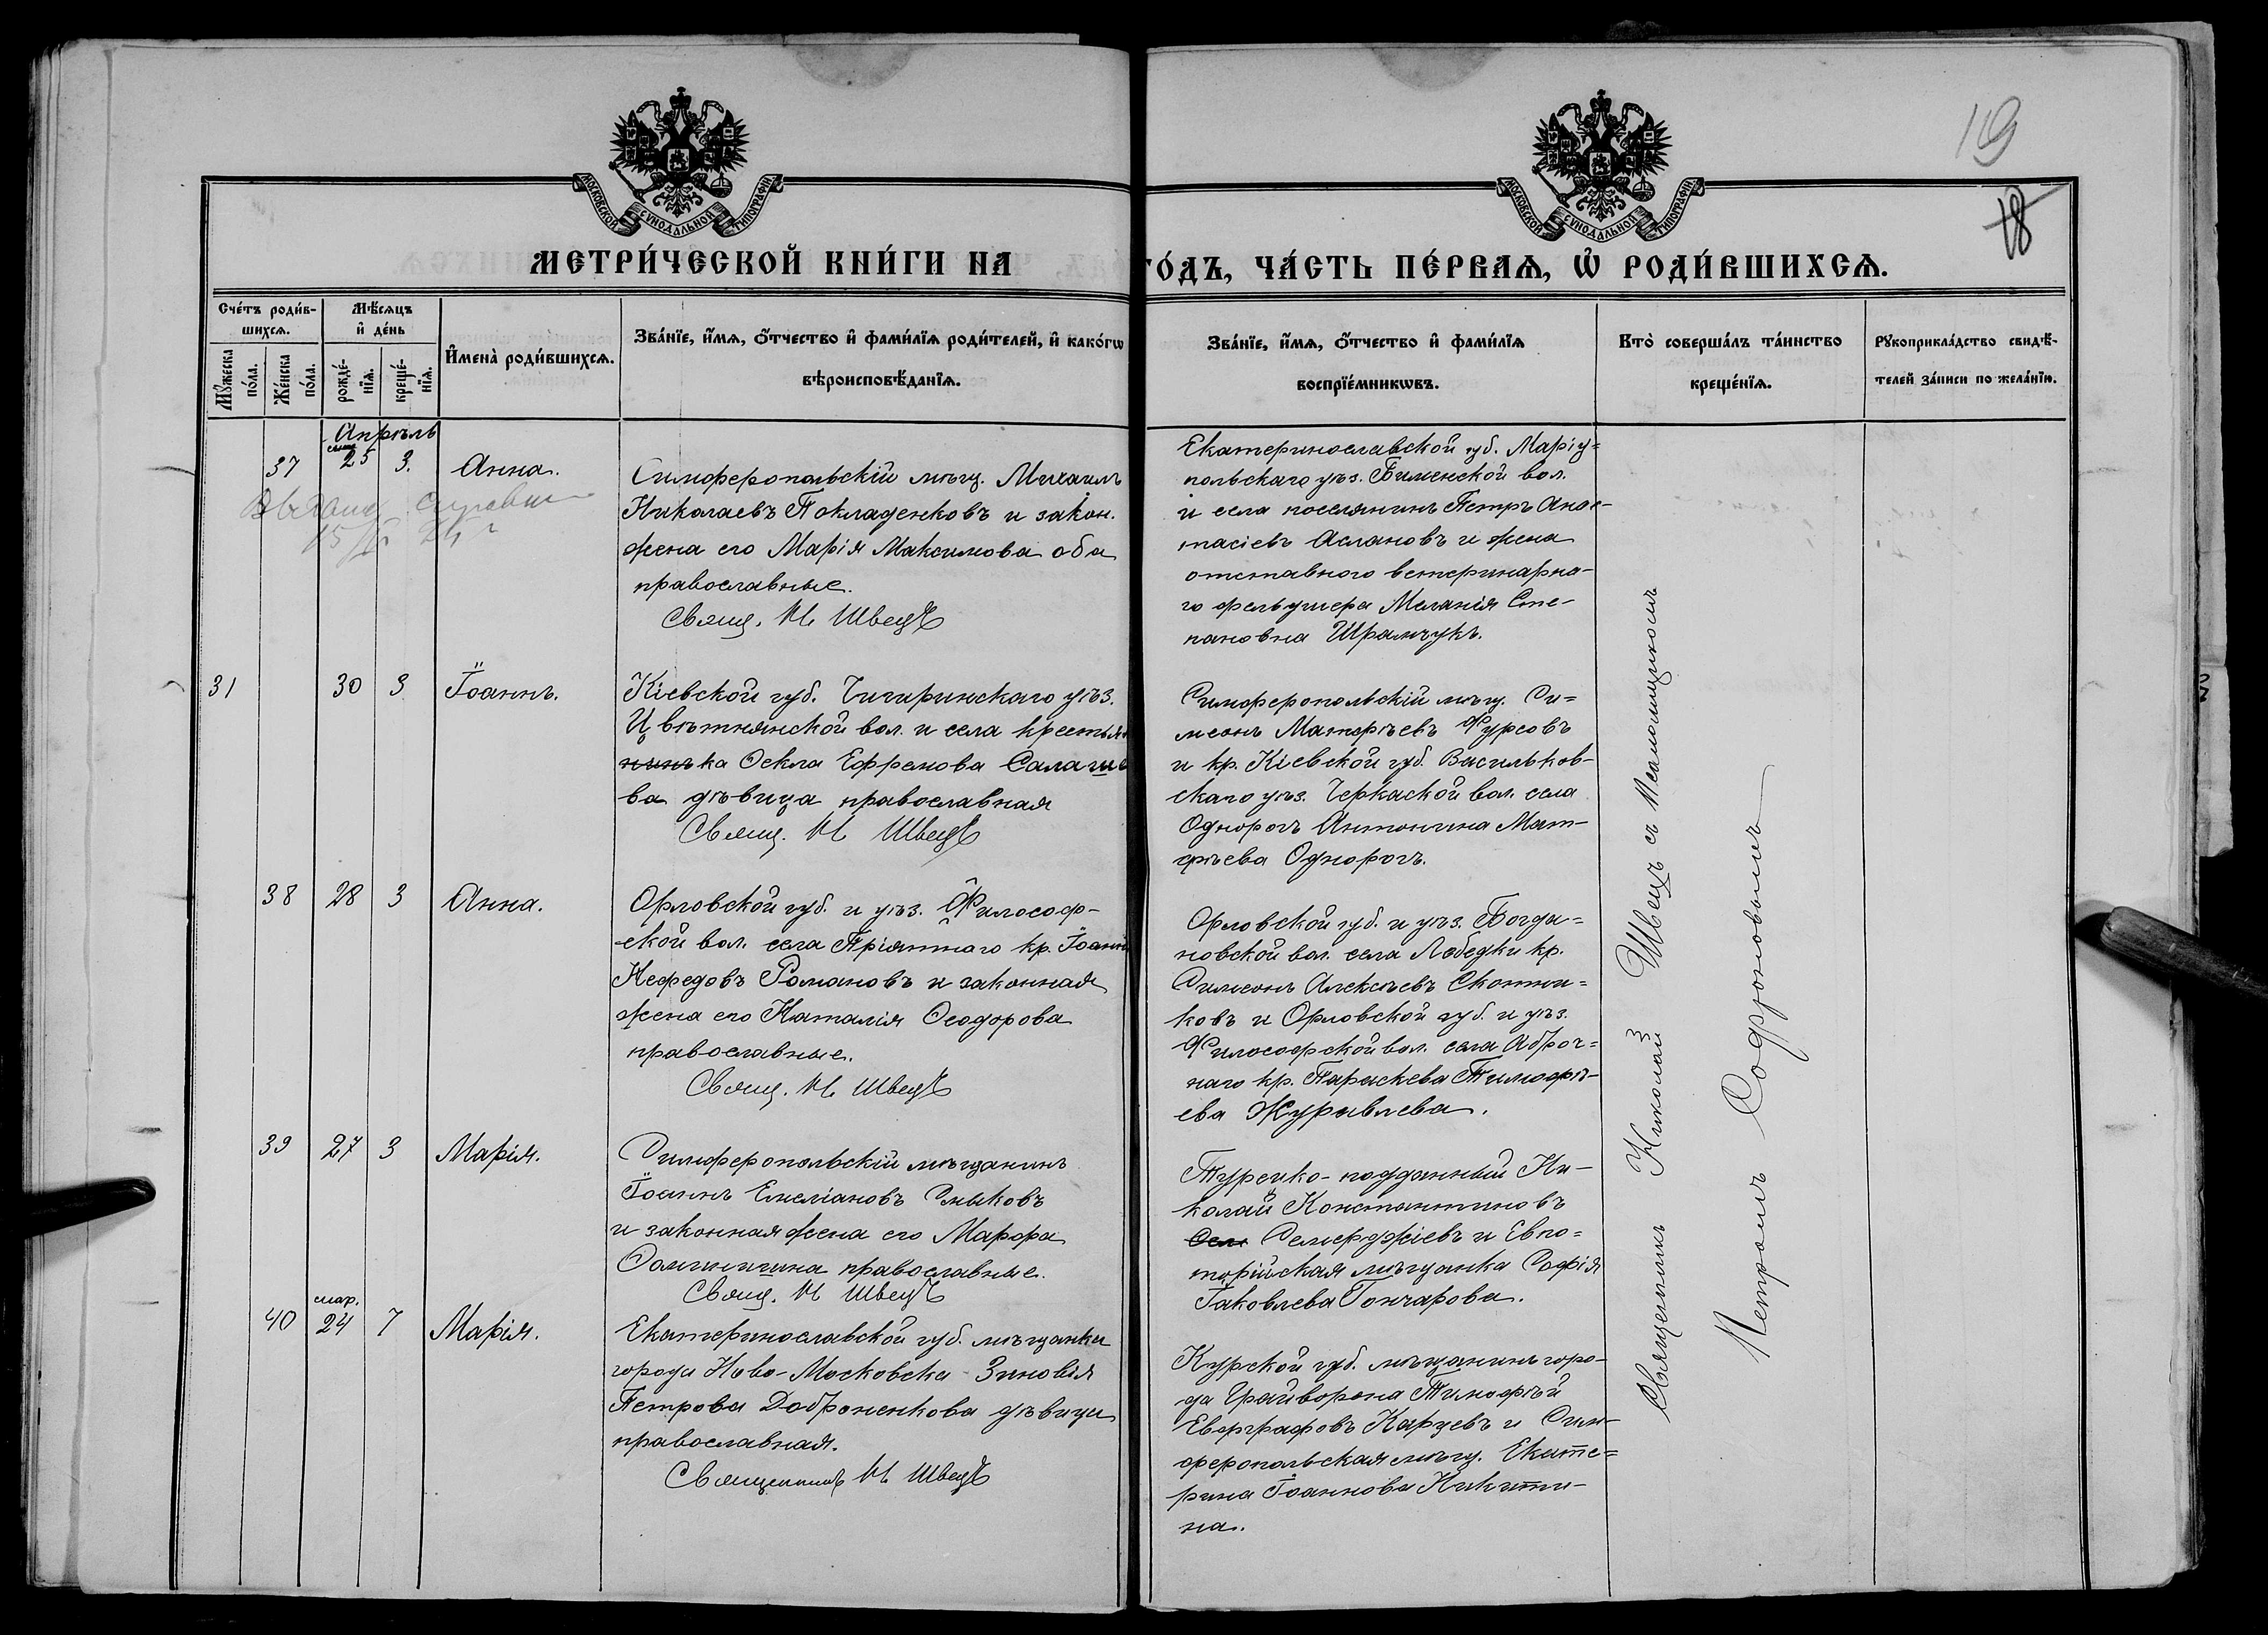 19
18
МОСКОВСКОЙ СѴНОДАЛЬНОЙ ТИПОГРАФІИ
МОСКОВСКОЙ СѴНОДАЛЬНОЙ ТИПОГРАФІИ
МЕТРИ́ЧЕСКОЙ КНИ́ГИ НА
ГО́ДЪ, ЧА́СТЬ ПЕ́РВАѦ, Ѡ҆ РОДИ́ВШИХСѦ.
Сче́тъ роди́в-
шихсѧ.
Мꙋ́жеска
по́ла.
Же́нска
по́ла.
Мѣ́сѧцъ
и҆ де́нь
рожде́-
нїѧ.
креще́-
нїѧ.
И҆мена̀ роди́вшихсѧ.
Зва́нїе, и҆́мѧ, ѻ҆́тчество и҆ фами́лїѧ роди́телей, и҆ како́гѡ
вѣроисповѣ́данїѧ.
Зва́нїе, и҆́мѧ, ѻ҆́тчество и҆ фами́лїѧ
воспрїе́мникѡвъ.
Кто̀ соверша́лъ та́инство
креще́нїѧ.
Рꙋкоприкла́дство свидѣ́-
телей за́писи по жела́нїю.
Апрѣль
37 25 3. Анна.
Симферопольскій мѣщ. Михаилъ
Николаевъ Покладенковъ и закон.
жена его Марія Максимова оба
православные.
Свящ. Н Швецъ
Екатеринославской губ. Маріу=
польскаго уѣз. Бишевской вол.
и села поселянинъ Петръ Анас-
тасіевъ Аслановъ и жена
отставного ветеринарна-
го фельдшера Меланія Сте-
пановна Шрамчукъ.
31 30 3 Іоаннъ.
Кіевской губ. Чигиринскаго уѣз.
Цвѣтнянской вол. и села крестьян
ка Ѳекла Ефремова
ва дѣвица православная
Свящ. Н Швецъ
Симферопольскій мѣщ. Си=
меонъ Матфѣевъ Фурсовъ
и кр. Кіевской губ. Васильков-
скаго уѣз. Черкаской вол. села
Однорогъ Антонина Мат-
фѣева Однорогъ.
38 28 3 Анна.
Орловской губ. и уѣз. Философ-
ской вол. села Пріятнаго кр. Іоаннъ
Нефедовъ Романовъ и законная
жена его Наталія Ѳеодорова
православные.
Свящ. Н Швецъ
Орловской губ. и уѣз. Богда=
новской вол. села Лебедки кр.
Симеонъ Алексѣевъ Скотни=
ковъ и Орловской губ. и уѣз.
Философской вол. села Аброч=
наго кр. Параскева Тимофѣ-
ева Журавлева.
39 27 3 Марія.
Симферопольскій мѣщанинъ
Іоаннъ Емеліановъ Сныковъ
и законная жена его Марфа
православные.
Свящ. Н Швецъ
Турецко-подданный Ни-
колай Константиновъ
Семерджіевъ и Евпа=
торійская мѣщанка Софія
Іаковлева Гончарова.
мар.
40 24 7 Марія.
Екатеринославской губ. мѣщанка
города Ново-Московска Зиновія
Петрова Доброненкова дѣвица
православная.
Священникъ Н Швецъ
Курской губ. мѣщанинъ горо-
да Грайворона Тимофѣй
Евграфовъ Карцевъ и Сим-
феропольская мѣщ. Екате=
рина Іоаннова Никити-
на.
Священникъ Николай Швецъ съ псаломщикомъ
Петромъ Софроновымъ